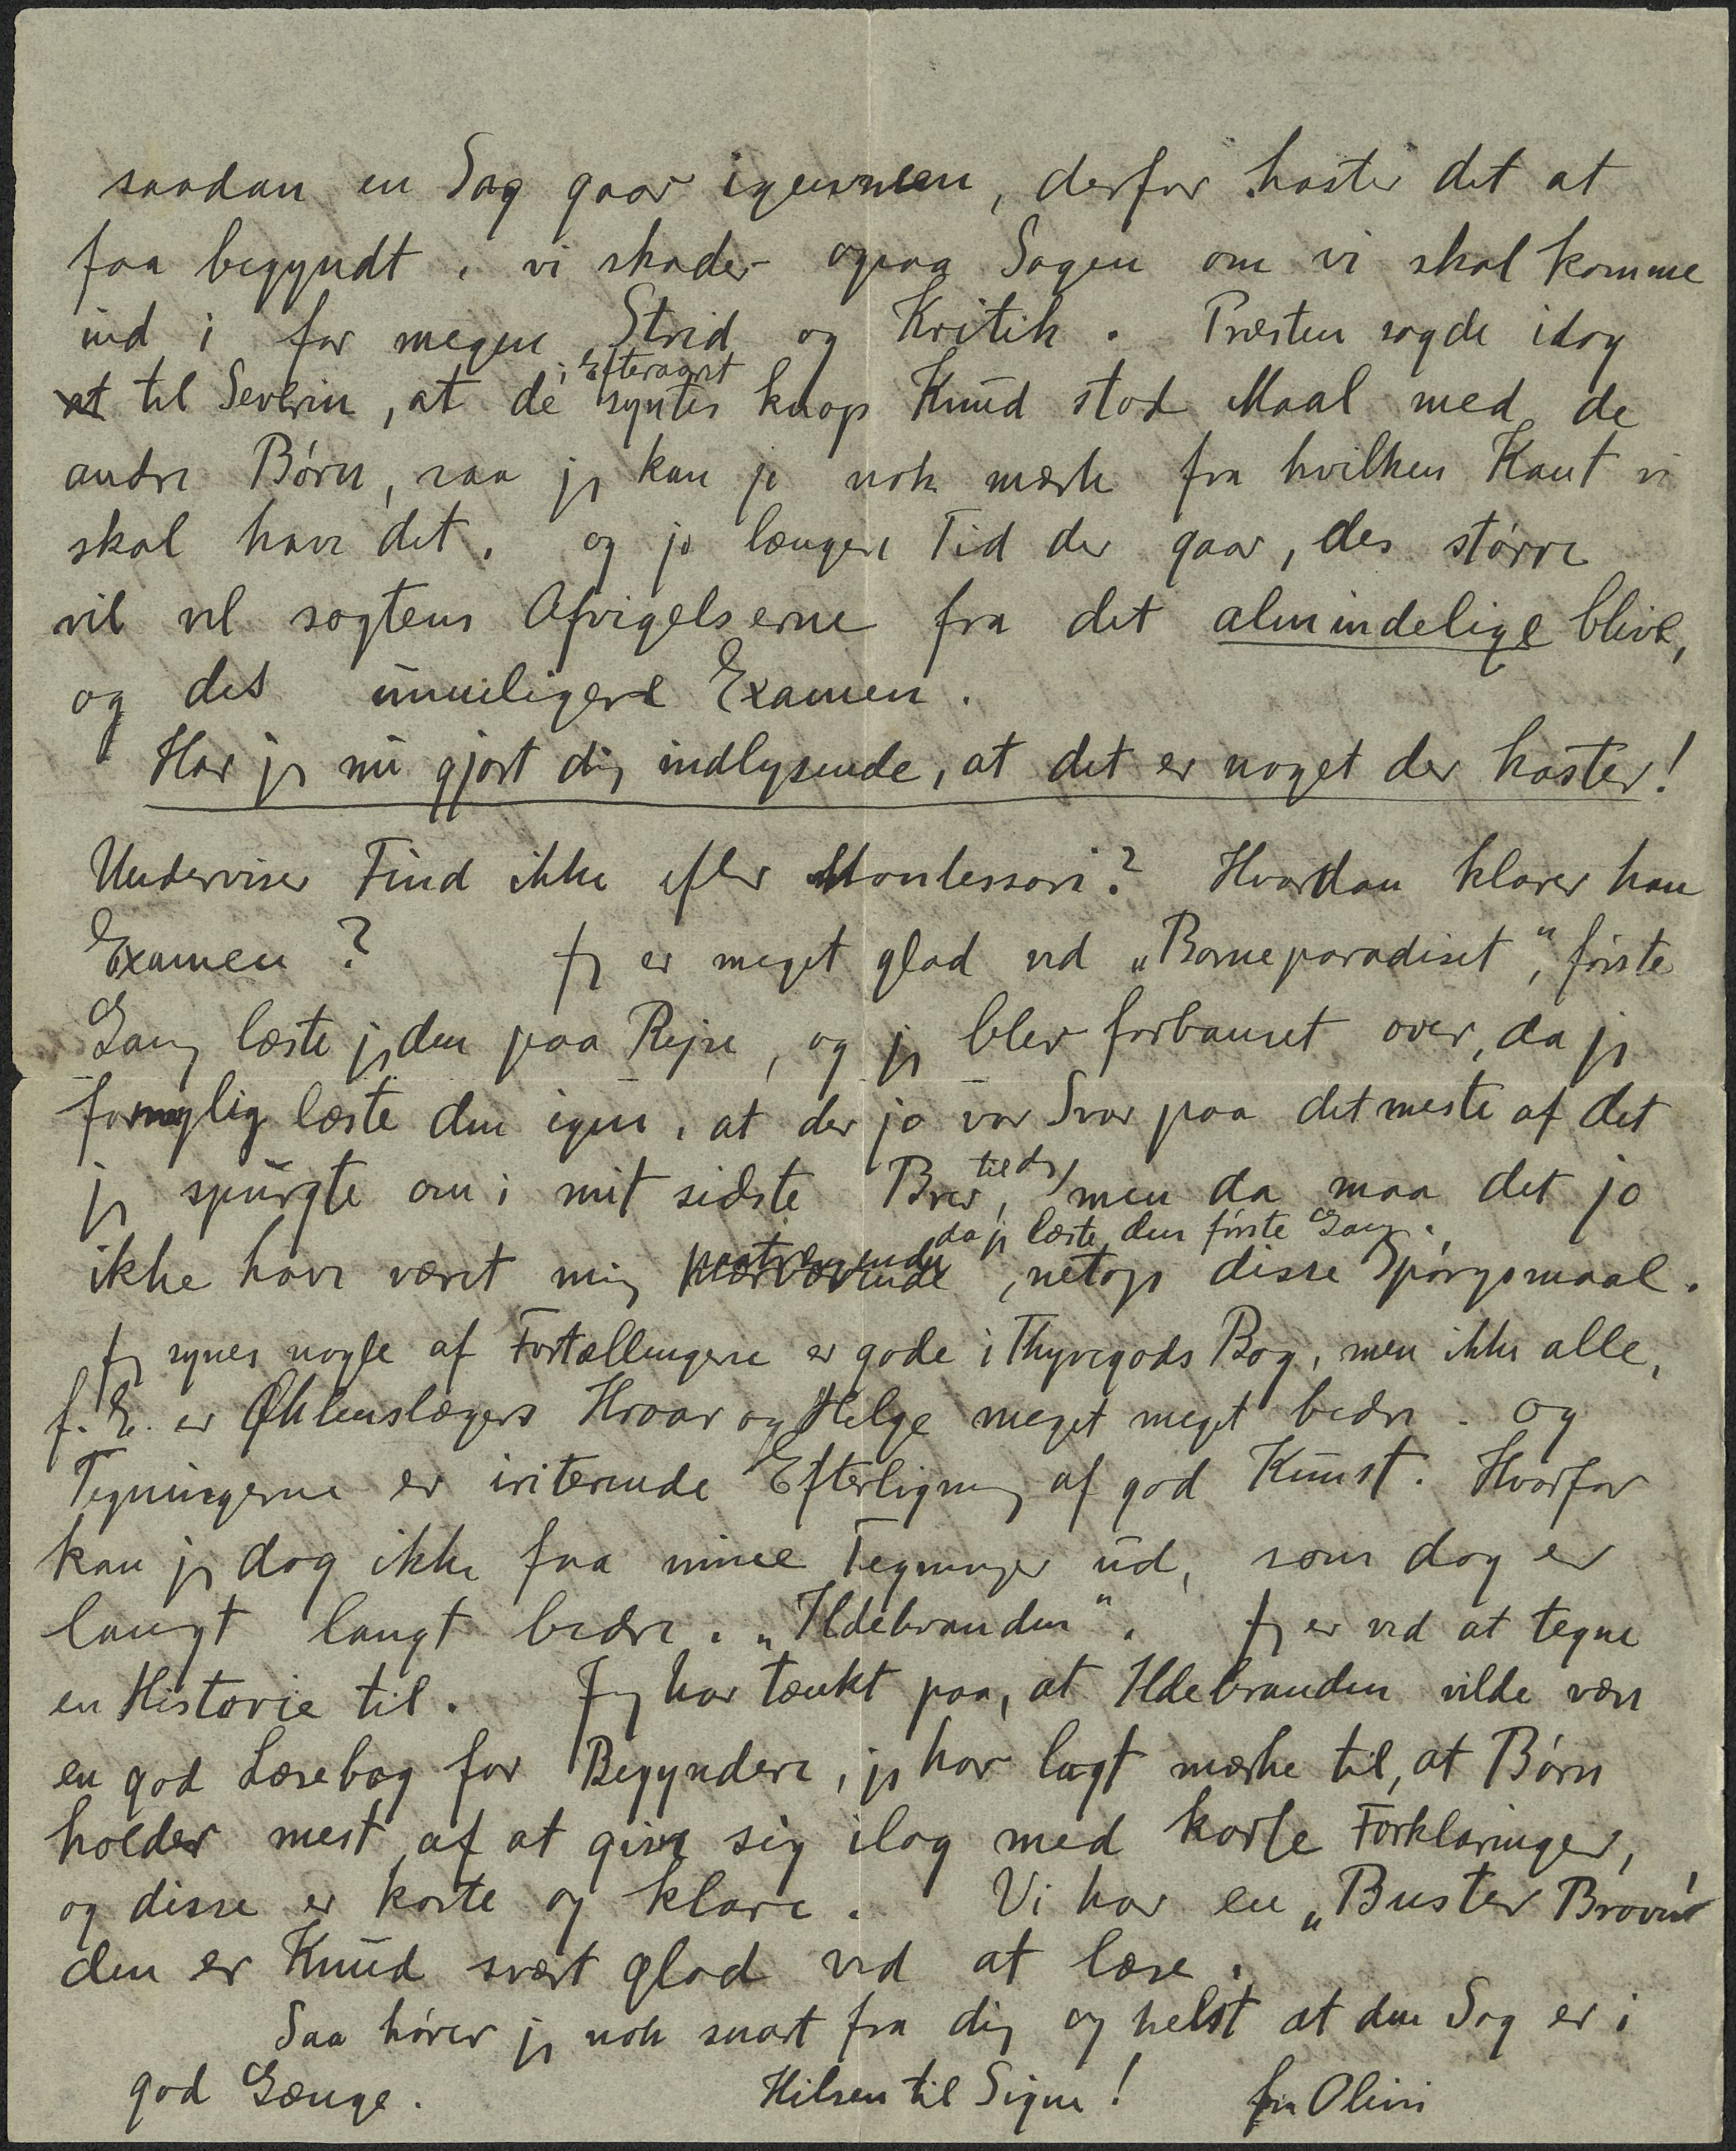 saadan en Sag gaar igennem, derfor haster det at
faa begyndt, vi skader ogsaa Sagen om vi skal komme
ind i for megen Strid og Kritik. Præsten sagde idag
at til Severin, at de i Efteraaret syntes knap Knud stod Maal med de
andre Børn, saa jeg kan jo nok mærke fra hvilken Kant vi
skal have det. og jo længere Tid der gaar, des større
vil vel sagtens Afvigelserne fra det almindelige blive,
og des umuligere Examen.
Har jeg nu gjort dig indlysende, at det er noget der haster!
Underviser Find ikke efter Montessori? Hvordan klarer han
Examen? Jeg er meget glad ved „Børneparadiset“, første
Gang læste jeg den paa Rejse, og jeg blev forbauset over, da jeg
fornylig læste den igen, at der jo var Svar paa det meste af det
jeg spurgte om i mit sidste Brev til dig, men da maa det jo
ikke have været mig paatrængende da jeg læste den første Gang, netop disse Spørgsmaal.
Jeg synes nogle af Fortællingerne er gode i Thyregods Bog, men ikke alle,
f. E. er Øhlenslægers Hroar og Helge meget meget bedre. og
Tegningerne er iriterende Efterligning af god Kunst. Hvorfor
kan jeg dog ikke faa mine Tegninger ud, som dog er
langt langt bedre. „Ildebranden“. Jeg er ved at tegne
en Historie til. Jeg har tænkt paa, at Ildebranden vilde være
en god Læsebog for Begyndere, jeg har lagt mærke til, at Børn
holder mest af at give sig ilag med korte Forklaringer,
og disse er korte og klare. Vi har en „Buster Brown“
den er Knud svært glad ved at læse.
Saa hører jeg nok snart fra dig og helst at den Sag er i
god Gænge. Hilsen til Signe! fra Olivia